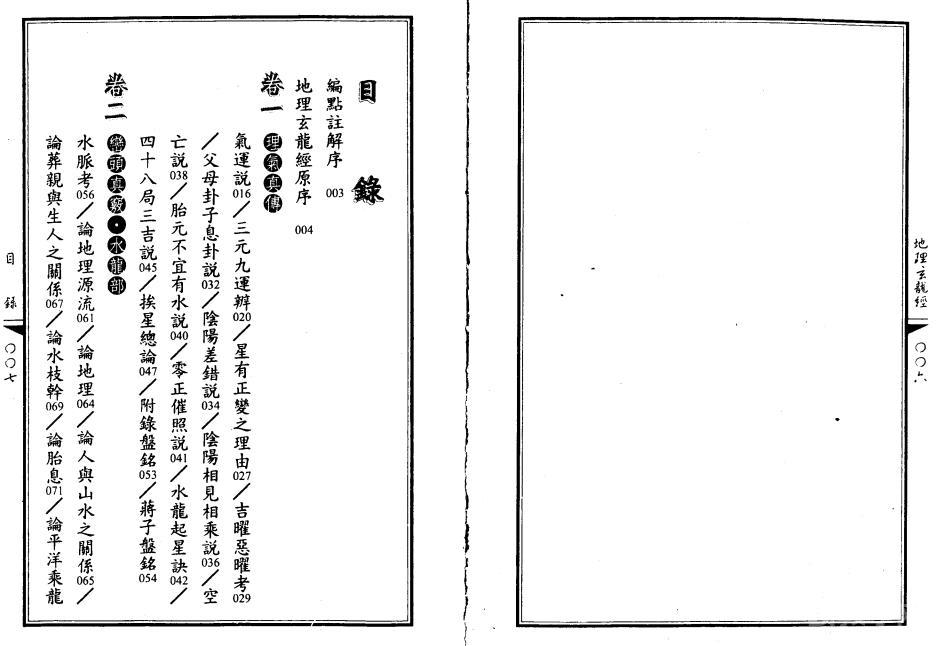 地理玄龍經
〇〇六
目錄
編點註解序 003
地理玄龍經原序 004
卷一 理氣真傳
氣運說016/三元九運辨020/星有正變之理由027/吉曜惡曜考029
/父母卦子息卦說032/陰陽差錯說034/陰陽相見相乘說036/空
亡說038/胎元不宜有水說040/零正催照說041/水龍起星訣042/
四十八局三吉說045/挨星總論047/附錄盤銘053/蔣子盤銘054
卷二 巒頭真竅·水龍部
水脈考056/論地理源流061/論地理064/論人與山水之關係065/
論葬親與生人之關係067/論水枝幹069/論胎息071/論平洋乘龍
目錄
〇〇七